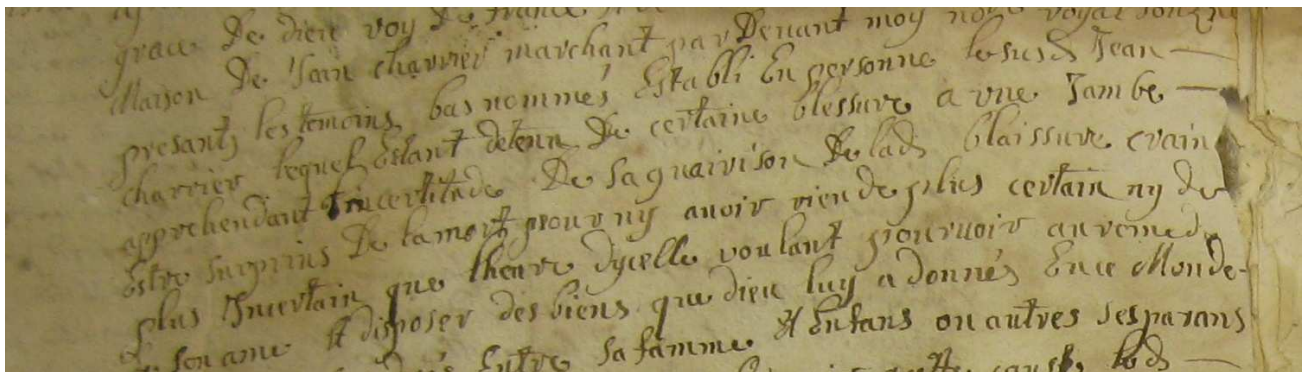 grace De dieu roy De france
Maison De Jean charrier marchant par Devant moy no^re royal soubzne
presants les temoins bas nommés Establi En personne lesusd Jean
charrier lequel Estant detenu De certaine blessure a une Jambe
apprehendant Lincertitade De sa guairison De lad blaissure crain
Estre surprins De la mort pour ny avoir rien de plus certain ny de
plus Incertain que lheure dycelle voulant pourvoir au remede
de son ame Et disposer des biens que dieu luy a donnés En ce Monde
Entre sa famme Et Enfans ou autres ses parans
cause led